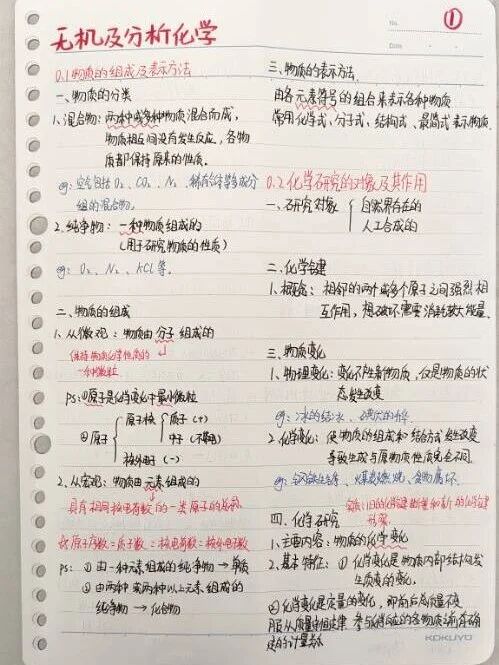 No.
①
Date
无机及分析化学
0.1物质的组成及表示方法
一、物质的分类
1.混合物:两种或多种物质混合而成,
物质相互间没有发生反应,各物
质都保持原来的性质。
eg:空气包括O₂、CO₂、N₂、稀有气体等多成分
组的混合物。
2.纯净物:一种物质组成的
(用于研究物质的性质)
eg:O₂、N₂、KCl等。
二、物质的组成
1.从微观:物质由分子组成的
保持物质化学性质的
一种微粒
PS:①原子是化学变化中最小微粒
②原子
原子核
质子(+)
中子(不带电)
核外电子(-)
2.从宏观:物质由元素组成的
具有相同核电荷数的一类原子的总称
原子序数=质子数=核电荷数=核外电子数
PS:①由一种元素组成的纯净物→单质
②由两种或两种以上元素组成的
纯净物→化合物
三、物质的表示方法
由各元素符号的组合来表示各种物质
常用化学式、分子式、结构式、最简式表示物质
0.2化学研究的对象及其作用
一、研究对象
自然界存在的
人工合成的
二、化学键
1.概念:相邻的两个或多个原子之间强烈相
互作用,想破坏需要消耗较大能量
三、物质变化
1.物理变化:变化不生新物质,仅是物质的状
态发生改变
eg:冰的
2.化学变化:使物质的组成和结合方式发生改变
导致生成与原物质性质完全不同
eg:钢铁生锈、煤炭燃烧、食物腐坏
实质:旧的化学键断裂和新的化学键
形成
四、化学研究
1.主要内容:物质的化学变化
2.基本特征:①化学变化是物质内部结构发
生质变的变化。
②化学变化是定量的变化,即前后总质量不变
服从质量守恒定律,参与化学反应的各物质间有确
定的计量关系
KOKUYO